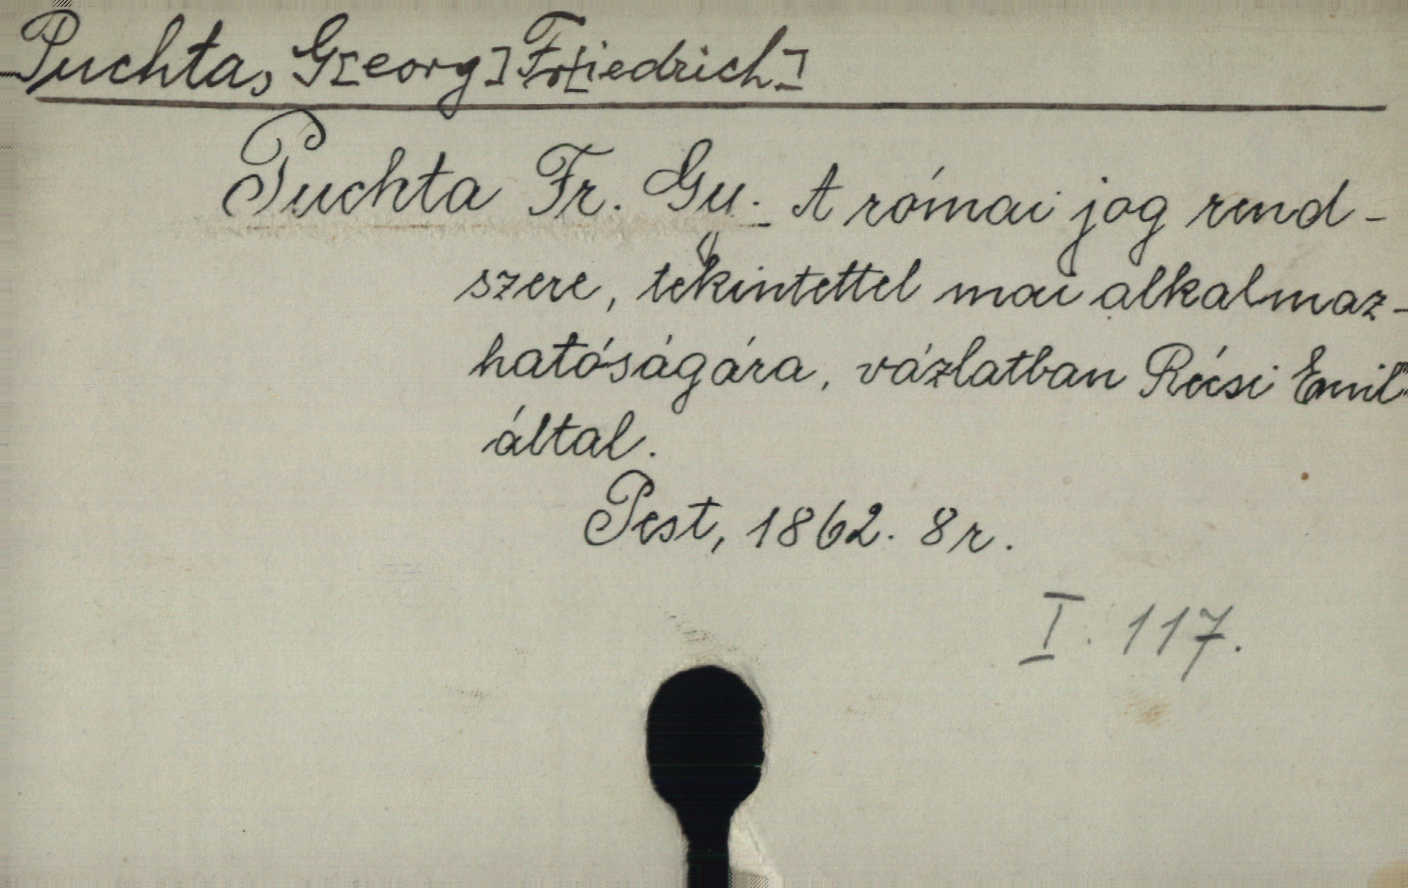 Puchta, G[eorg] Fr[iedrich]
Puchta Fr. Gy. A római jog rend-
szere, tekintettel mai alkalmaz-
hatóságára, vázlatban Récsi Emil
által.
Pest, 1862. 8r.
I. 117.